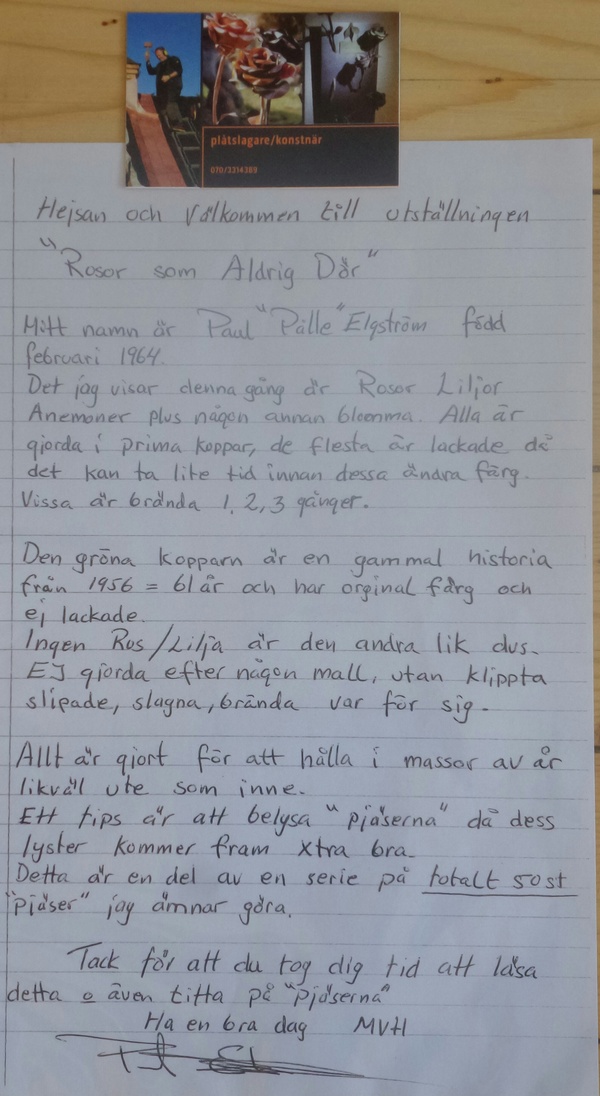 plåtslagare/konstnär
070/3314389
Hejsan och Välkommen till utställningen
"Rosor som Aldrig Dör"
Mitt namn är Paul "Pälle" Elgström född
februari 1964.
Det jag visar denna gång är Rosor Liljor
Anemoner plus någon annan bloomma. Alla är
gjorda i prima koppar, de flesta är lackade då
det kan ta lite tid innan dessa ändra färg.
Vissa är brända 1, 2, 3 gånger.
Den gröna kopparn är en gammal historia
från 1956 = 61 år och har orginal färg och
ej lackade.
Ingen Ros/Lilja är den andra lik dvs.
EJ gjorda efter någon mall, utan klippta
slipade, slagna, brända var för sig.
Allt är gjort för att hålla i massor av år
likväl ute som inne.
Ett tips är att belysa "pjäserna" då dess
lyster kommer fram xtra bra.
Detta är en del av en serie på totalt 50 st
"pjäser" jag ämnar göra.
Tack för att du tog dig tid att läsa
detta o även titta på "pjäserna"
Ha en bra dag MVH